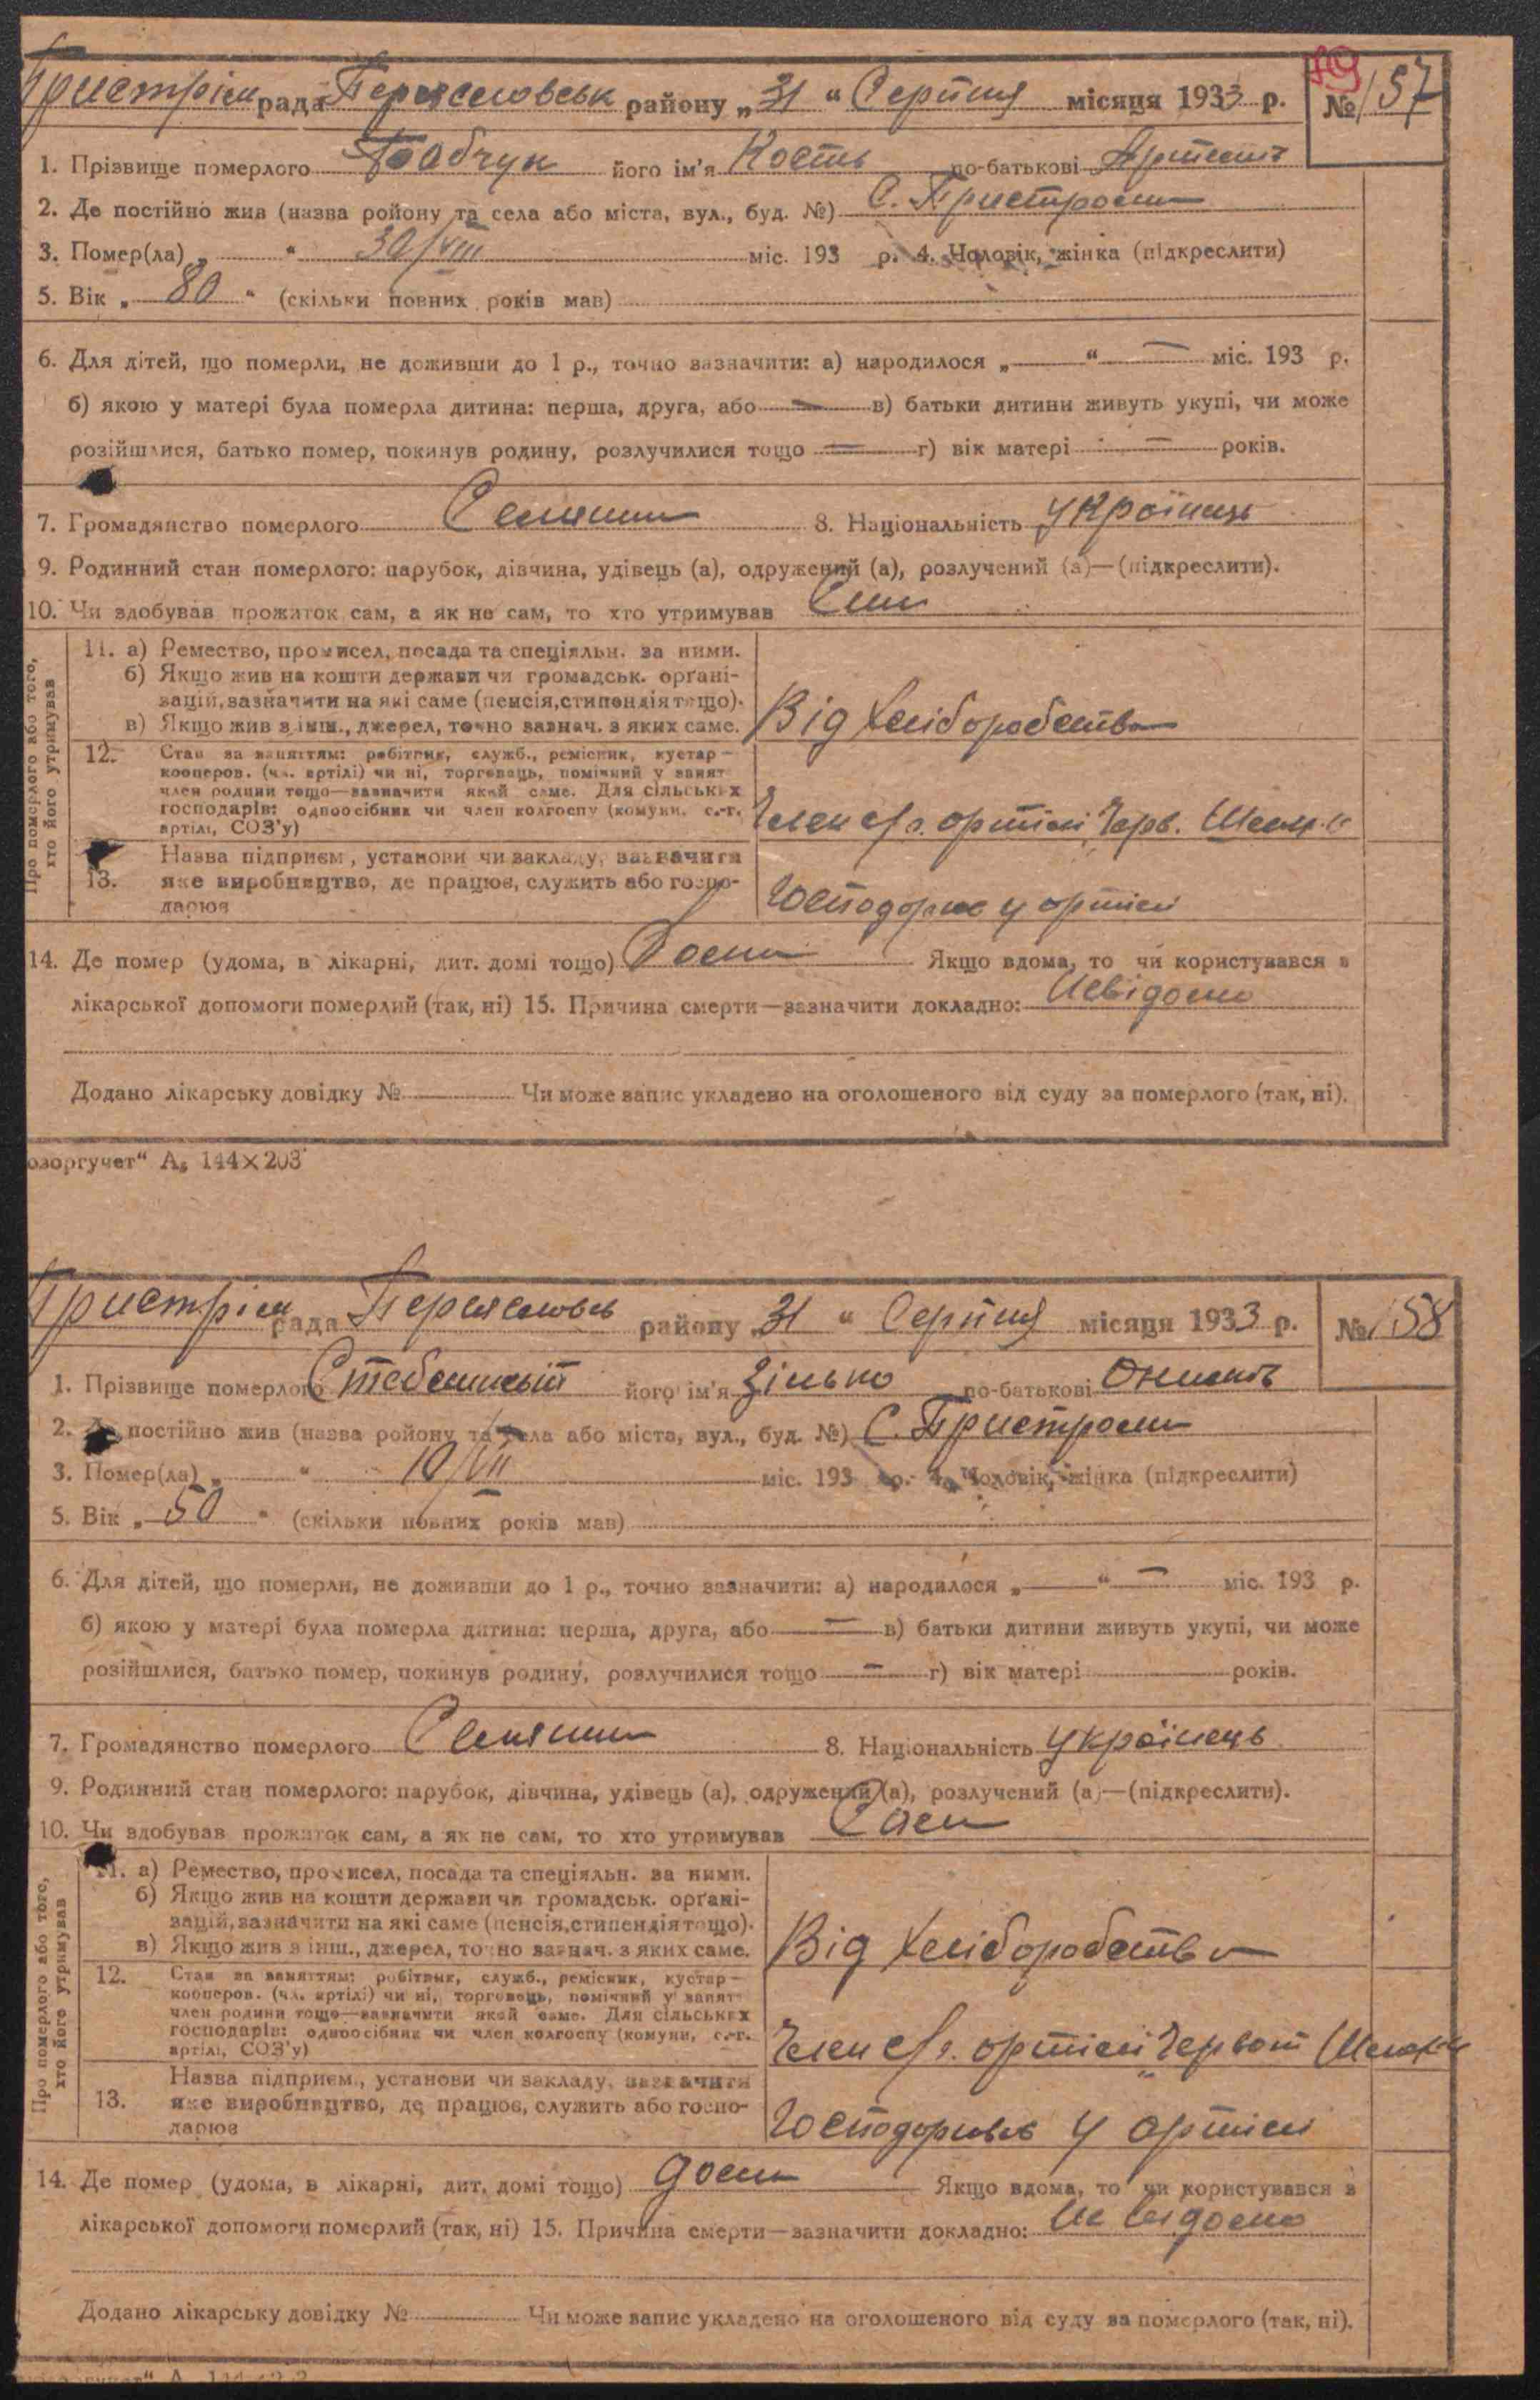 Пристрім рада Переяславськ район у „31 “ Серпня місяця 1933 р. № 157
1. Прізвище померлого Бабчук його ім'я Кость по-батькові
2. Де постійно жив (назва ройону та села або міста, вул., буд. №) С. Пристроми
3. Помер(ла) „ “ 30/VIII міс. 193 р. 4. Чоловік, жінка (підкреслити)
5. Вік „ 80 “ (скільки повних років мав)
6. Для дітей, що померли, не доживши до 1 р., точно зазначити: а) народилося „ — “ — міс. 193 р.
б) якою у матері була померла дитина: перша, друга, або — в) батьки дитини живуть укупі, чи може
розійшлися, батько помер, покинув родину, розлучилися тощо — г) вік матері — років.
7. Громадянство померлого Селянин 8. Національність українець
9. Родинний стан померлого: парубок, дівчина, удівець (а), одружений (а), розлучений (а)—(підкреслити).
10. Чи здобував прожиток сам, а як не сам, то хто утримував
Про померлого або того, хто його утримував
11. а) Ремество, промисел, посада та спеціяльн. за ними.
б) Якщо жив на кошти держави чи громадськ. орґані-
зацій, зазначити на які саме (пенсія, стипендія тощо).
в) Якщо жив з інш., джерел, точно зазнач. з яких саме. Від хліборобства
12. Стан за заняттям: робітник, служб., ремісник, кустар —
кооперов. (чл. артілі) чи ні, торговець, помічний у занят
член родини тощо—зазначити який саме. Для сільських
господарів: одноосібник чи член колгоспу (комуни, с.-г.
артілі, СОЗ'у) Член с/г. артілі Черв.
13. Назва підприєм., установи чи закладу, зазначити
яке виробництво, де працює, служить або госпо-
дарює Господарює у артілі
14. Де помер (удома, в лікарні, дит. домі тощо) Дома Якщо вдома, то чи користувався в
лікарської допомоги померлий (так, ні) 15. Причина смерти—зазначити докладно: Невідомо
Додано лікарську довідку № Чи може запис укладено на оголошеного від суду за померлого (так, ні).
озоргучет“ А₅ 144×203
Пристрім рада Переяславсь району „31 “ Серпня місяця 1933 р. № 158
1. Прізвище померлого його ім'я Зінько по-батькові
2. Де постійно жив (назва ройону та села або міста, вул., буд. №) С. Пристроми
3. Помер(ла) „ “ 10/VII міс. 193 р. 4. Чоловік, жінка (підкреслити)
5. Вік „ 50 “ (скільки повних років мав)
6. Для дітей, що померли, не доживши до 1 р., точно зазначити: а) народилося „ — “ — міс. 193 р.
б) якою у матері була померла дитина: перша, друга, або — в) батьки дитини живуть укупі, чи може
розійшлися, батько помер, покинув родину, розлучилися тощо — г) вік матері років.
7. Громадянство померлого Селянин 8. Національність українець
9. Родинний стан померлого: парубок, дівчина, удівець (а), одружений (а), розлучений (а)—(підкреслити).
10. Чи здобував прожиток сам, а як не сам, то хто утримував Сам
Про померлого або того, хто його утримував
11. а) Ремество, промисел, посада та спеціяльн. за ними.
б) Якщо жив на кошти держави чи громадськ. орґані-
зацій, зазначити на які саме (пенсія, стипендія тощо).
в) Якщо жив з інш., джерел, точно зазнач. з яких саме. Від хліборобства
12. Стан за заняттям: робітник, служб., ремісник, кустар —
кооперов. (чл. артілі) чи ні, торговець, помічний у занят
член родини тощо—зазначити який саме. Для сільських
господарів: одноосібник чи член колгоспу (комуни, с.-г.
артілі, СОЗ'у) Член с/г. артілі
13. Назва підприєм., установи чи закладу, зазначити
яке виробництво, де працює, служить або госпо-
дарює Господарював у артілі
14. Де помер (удома, в лікарні, дит. домі тощо) дома Якщо вдома, то чи користувався в
лікарської допомоги померлий (так, ні) 15. Причина смерти—зазначити докладно: Не відомо
Додано лікарську довідку № Чи може запис укладено на оголошеного від суду за померлого (так, ні).